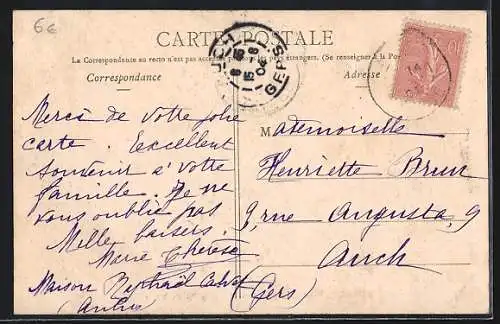 6€
CARTE POSTALE
La Correspondance au recto n'est pas acceptée par tous les pays étrangers. (Se renseigner à la Poste)
Correspondance
Adresse
AUCH
GERS
Merci de votre jolie
carte. Excellent
souvenir à votre
famille. Je ne
vous oublie pas
Mille baisers.
Marie Thérèse
Maison Raphaël Calvet
Mademoiselle
Henriette Brun
9, rue Augusta, 9
Auch
(Gers)